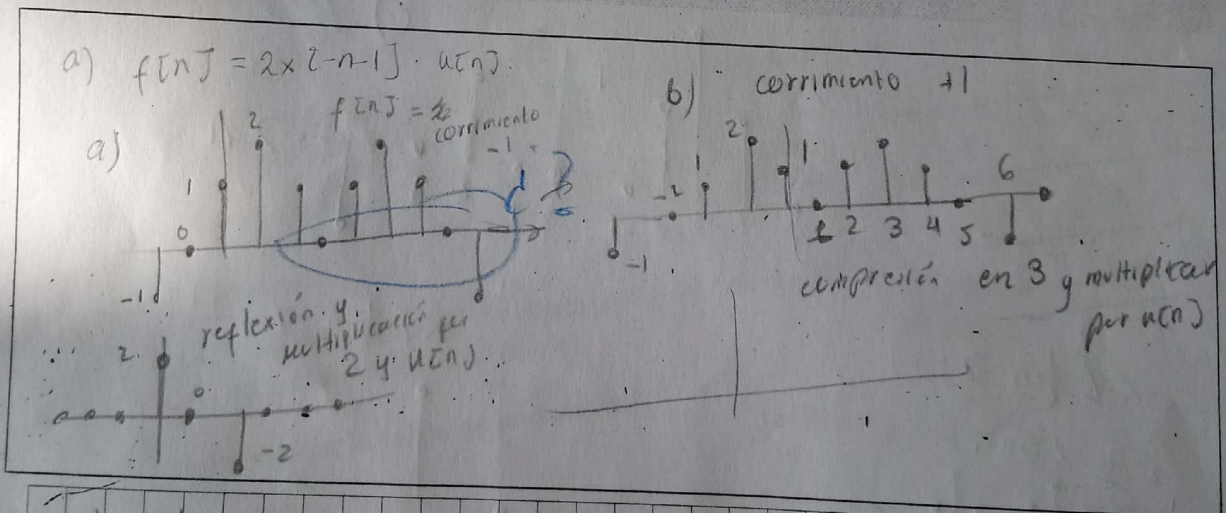 a) f[n] = 2x[-n-1] · u[n].
a)
f[n] =
corrimiento
-1
?
2
1
0
-1
reflexión y
multiplicación por
2 y u[n].
2
0
-2
b) corrimiento +1
2
1
-2
1
6
1 2 3 4 5
-1
compresión en 3 y multiplicar
por u[n]